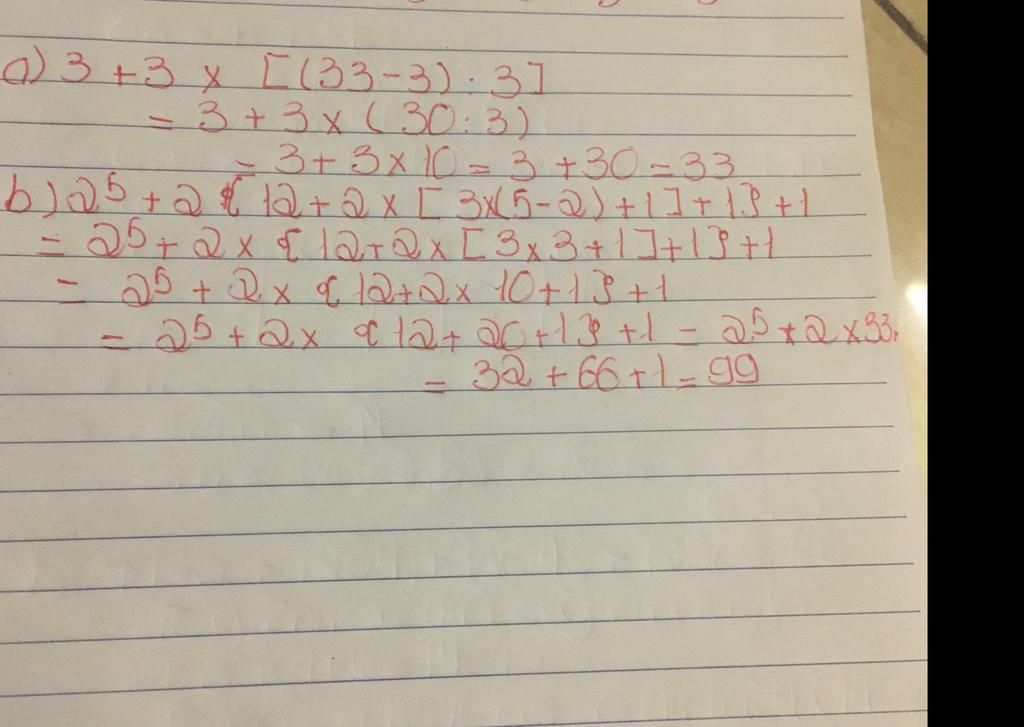 a) 3 + 3 x [(33-3) : 3]
= 3 + 3 x (30:3)
= 3 + 3 x 10 = 3 + 30 = 33
b) 2⁵ + 2 { 12 + 2 x [ 3x(5-2) + 1 ] + 1} + 1
= 2⁵ + 2 x { 12 + 2 x [3 x 3 + 1] + 1} + 1
= 2⁵ + 2 x { 12 + 2 x 10 + 1} + 1
= 2⁵ + 2 x { 12 + 20 + 1} + 1 = 2⁵ + 2 x 33
= 32 + 66 + 1 = 99